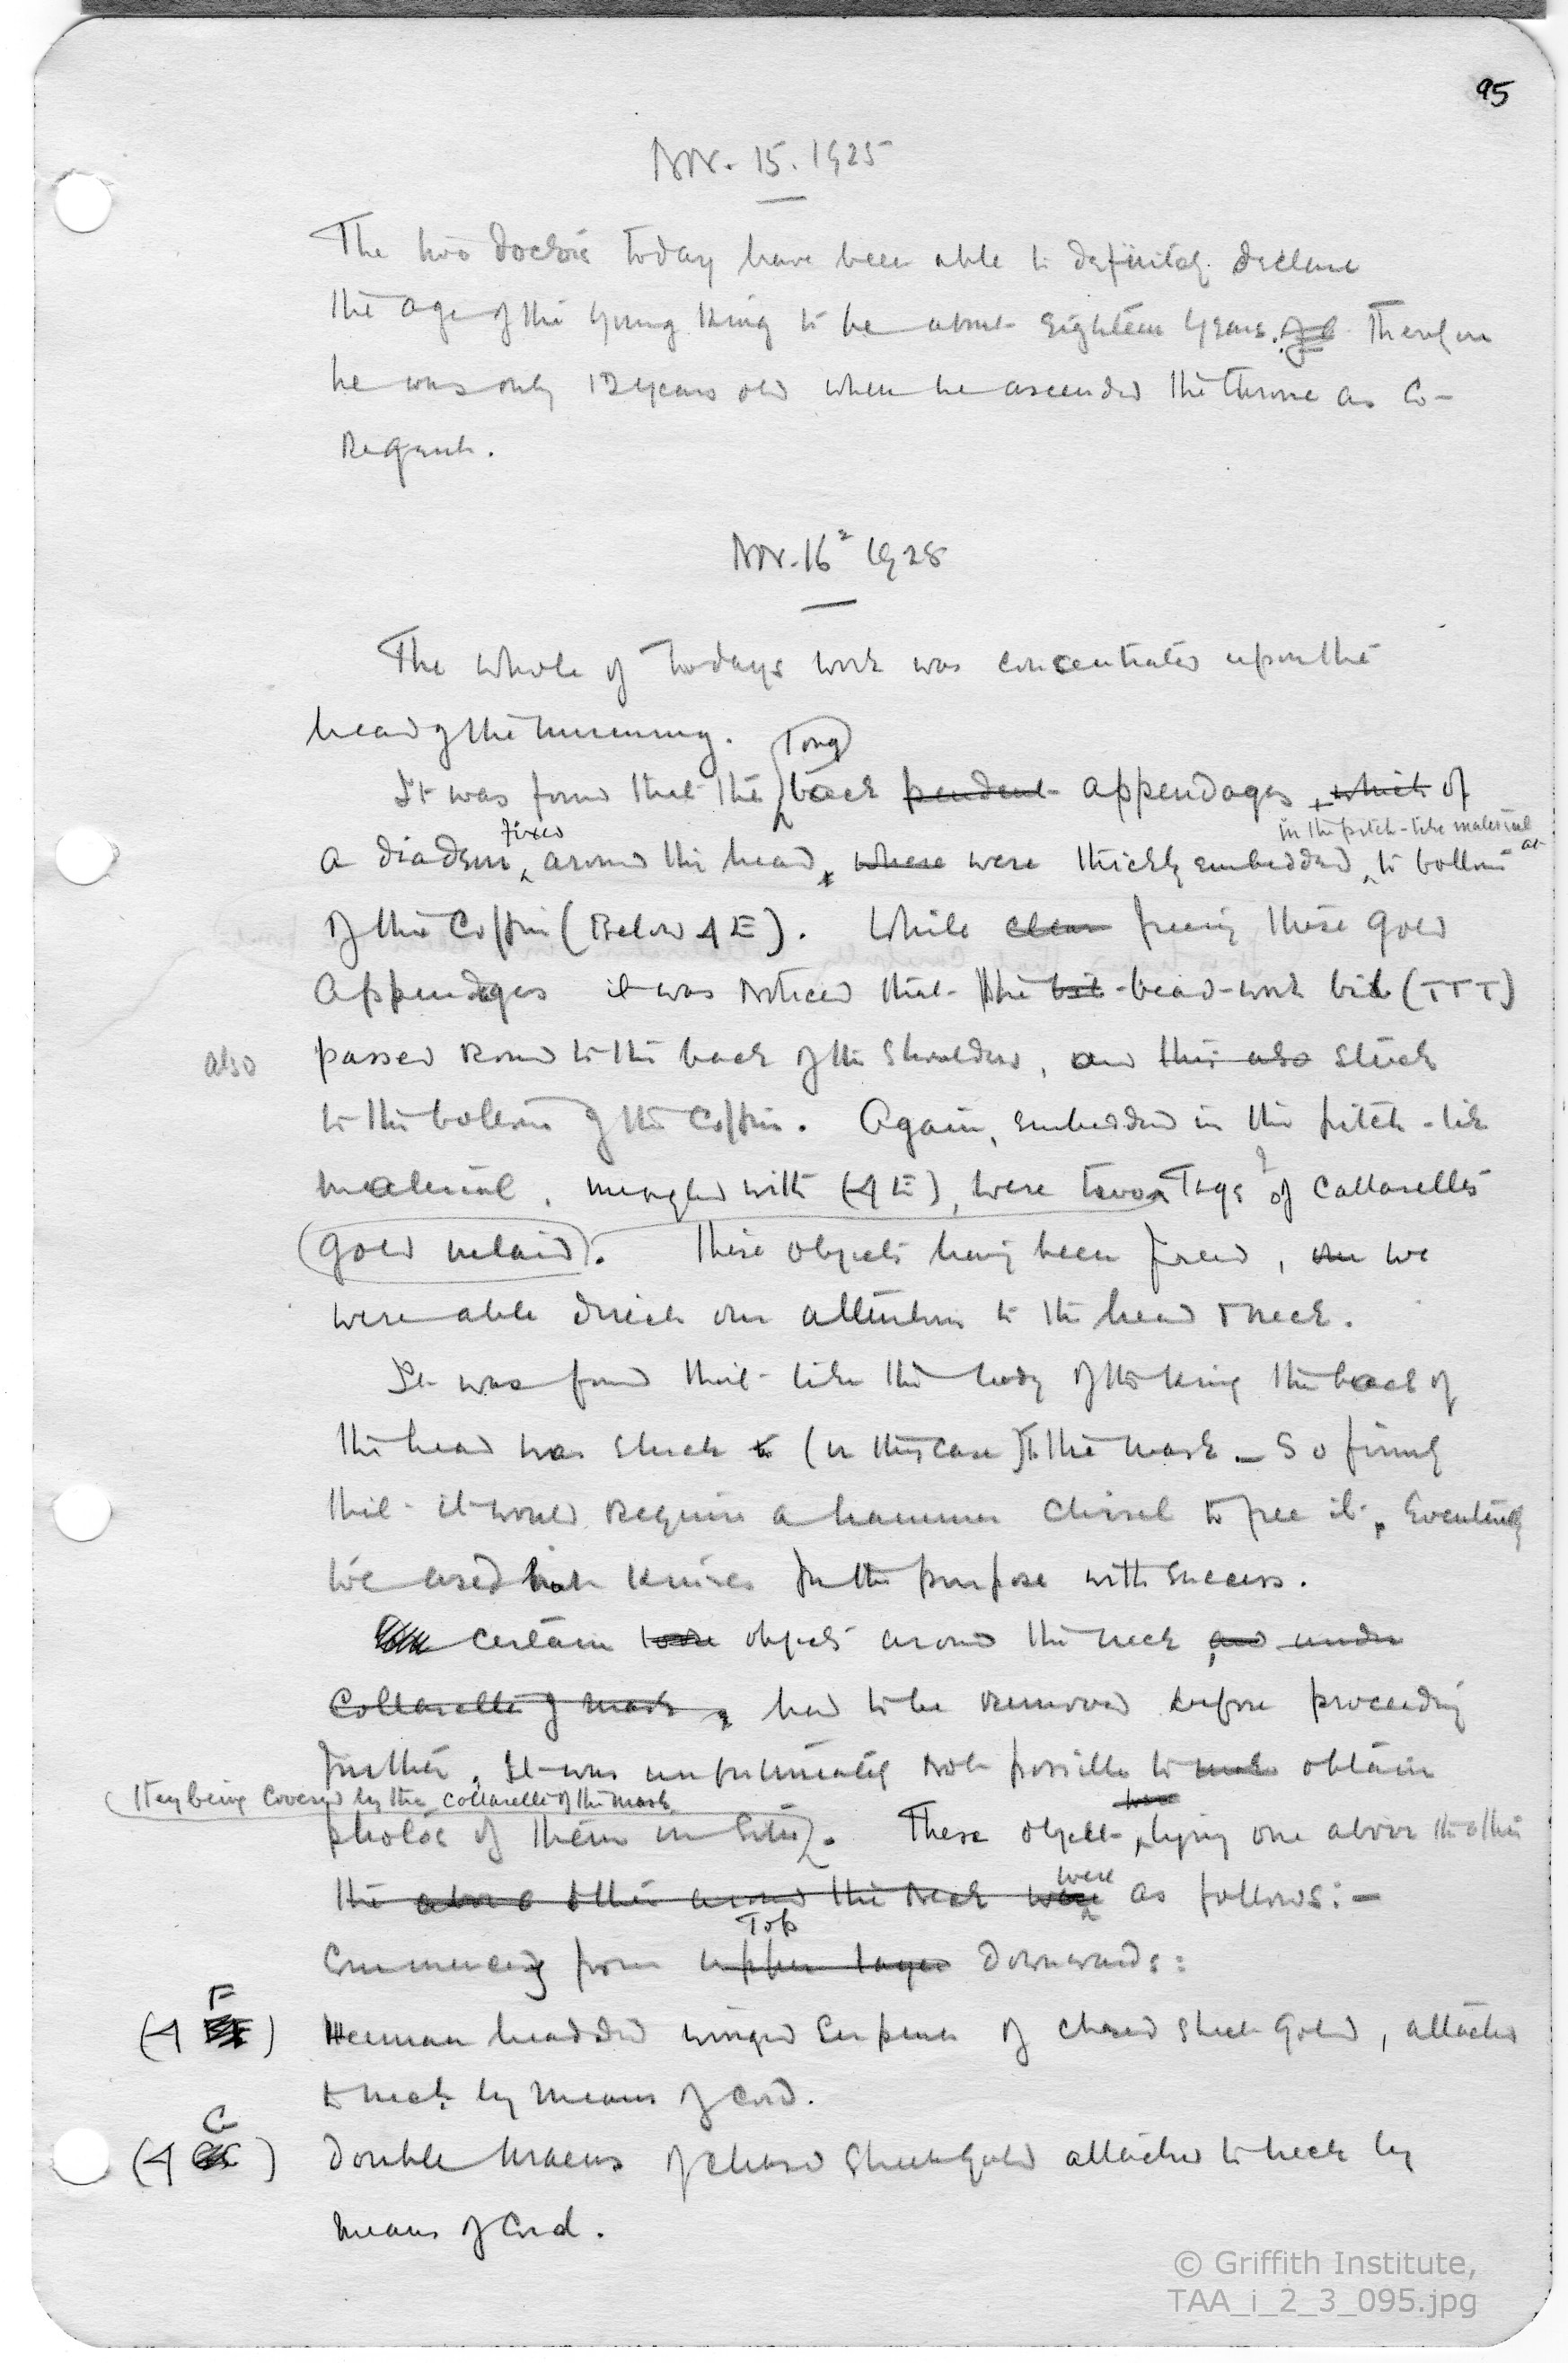 95
Nov. 15. 1925
The two doctors today have been able to definitely declare
the age of the young King to be about eighteen years. Therefore
he was only 12 years old when he ascended the throne as Co-
Regent.
Nov. 16 1925
The whole of todays work was concentrated upon the
head of the mummy.
Long
It was found that the back pendent appendages, which of
fixed
in the pitch-like material
a diadem around the head, where were thickly embedded to bottom
at
of the Coffin (Below 4 E). While clean freeing these gold
appendages it was noticed that the bib-bead-work bib (TTT)
also passed round to the back of the shoulders, and this also stuck
to the bottom of the Coffin. Again, embedded in the pitch-like
material, mingled with (4 E), were two Tags ? of Collarettes
(gold inlaid). These objects having been freed, we
were able direct our attention to the head & neck.
It was found that like the body of the King the back of
the head was stuck to (in this case) to the mask - so firmly
that it would require a hammer chisel to free it. Eventually
we used hot knives for the purpose with success.
Certain objects around the neck, and under
Collarette of mask, had to be removed before proceeding
further. It was unfortunately not possible to make obtain
they being covered by the collarette of the mask
photos of them in situ. These objects, lying one above the other
the above other around the neck were were as follows:-
Top
Commencing from upper layer downwards:
F
(4 ) Human headded winged Serpent of chased sheet Gold, attached
to neck by means of cord.
G
(4 ) Double Uraeus of chased Sheet Gold attached to neck by
means of Cord.
© Griffith Institute,
TAA_i_2_3_095.jpg